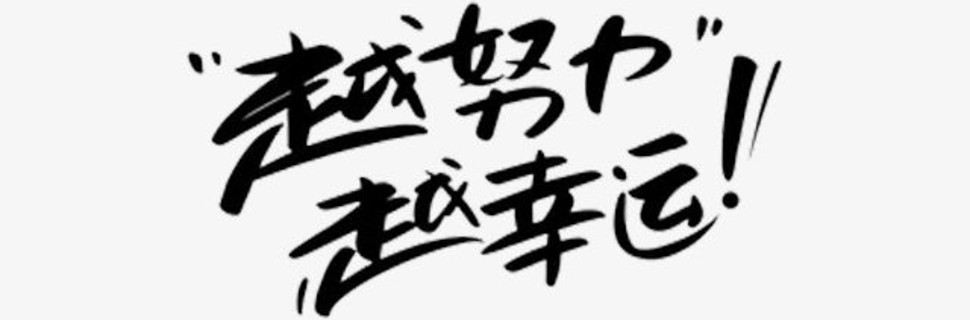 “越努力”
越幸运！